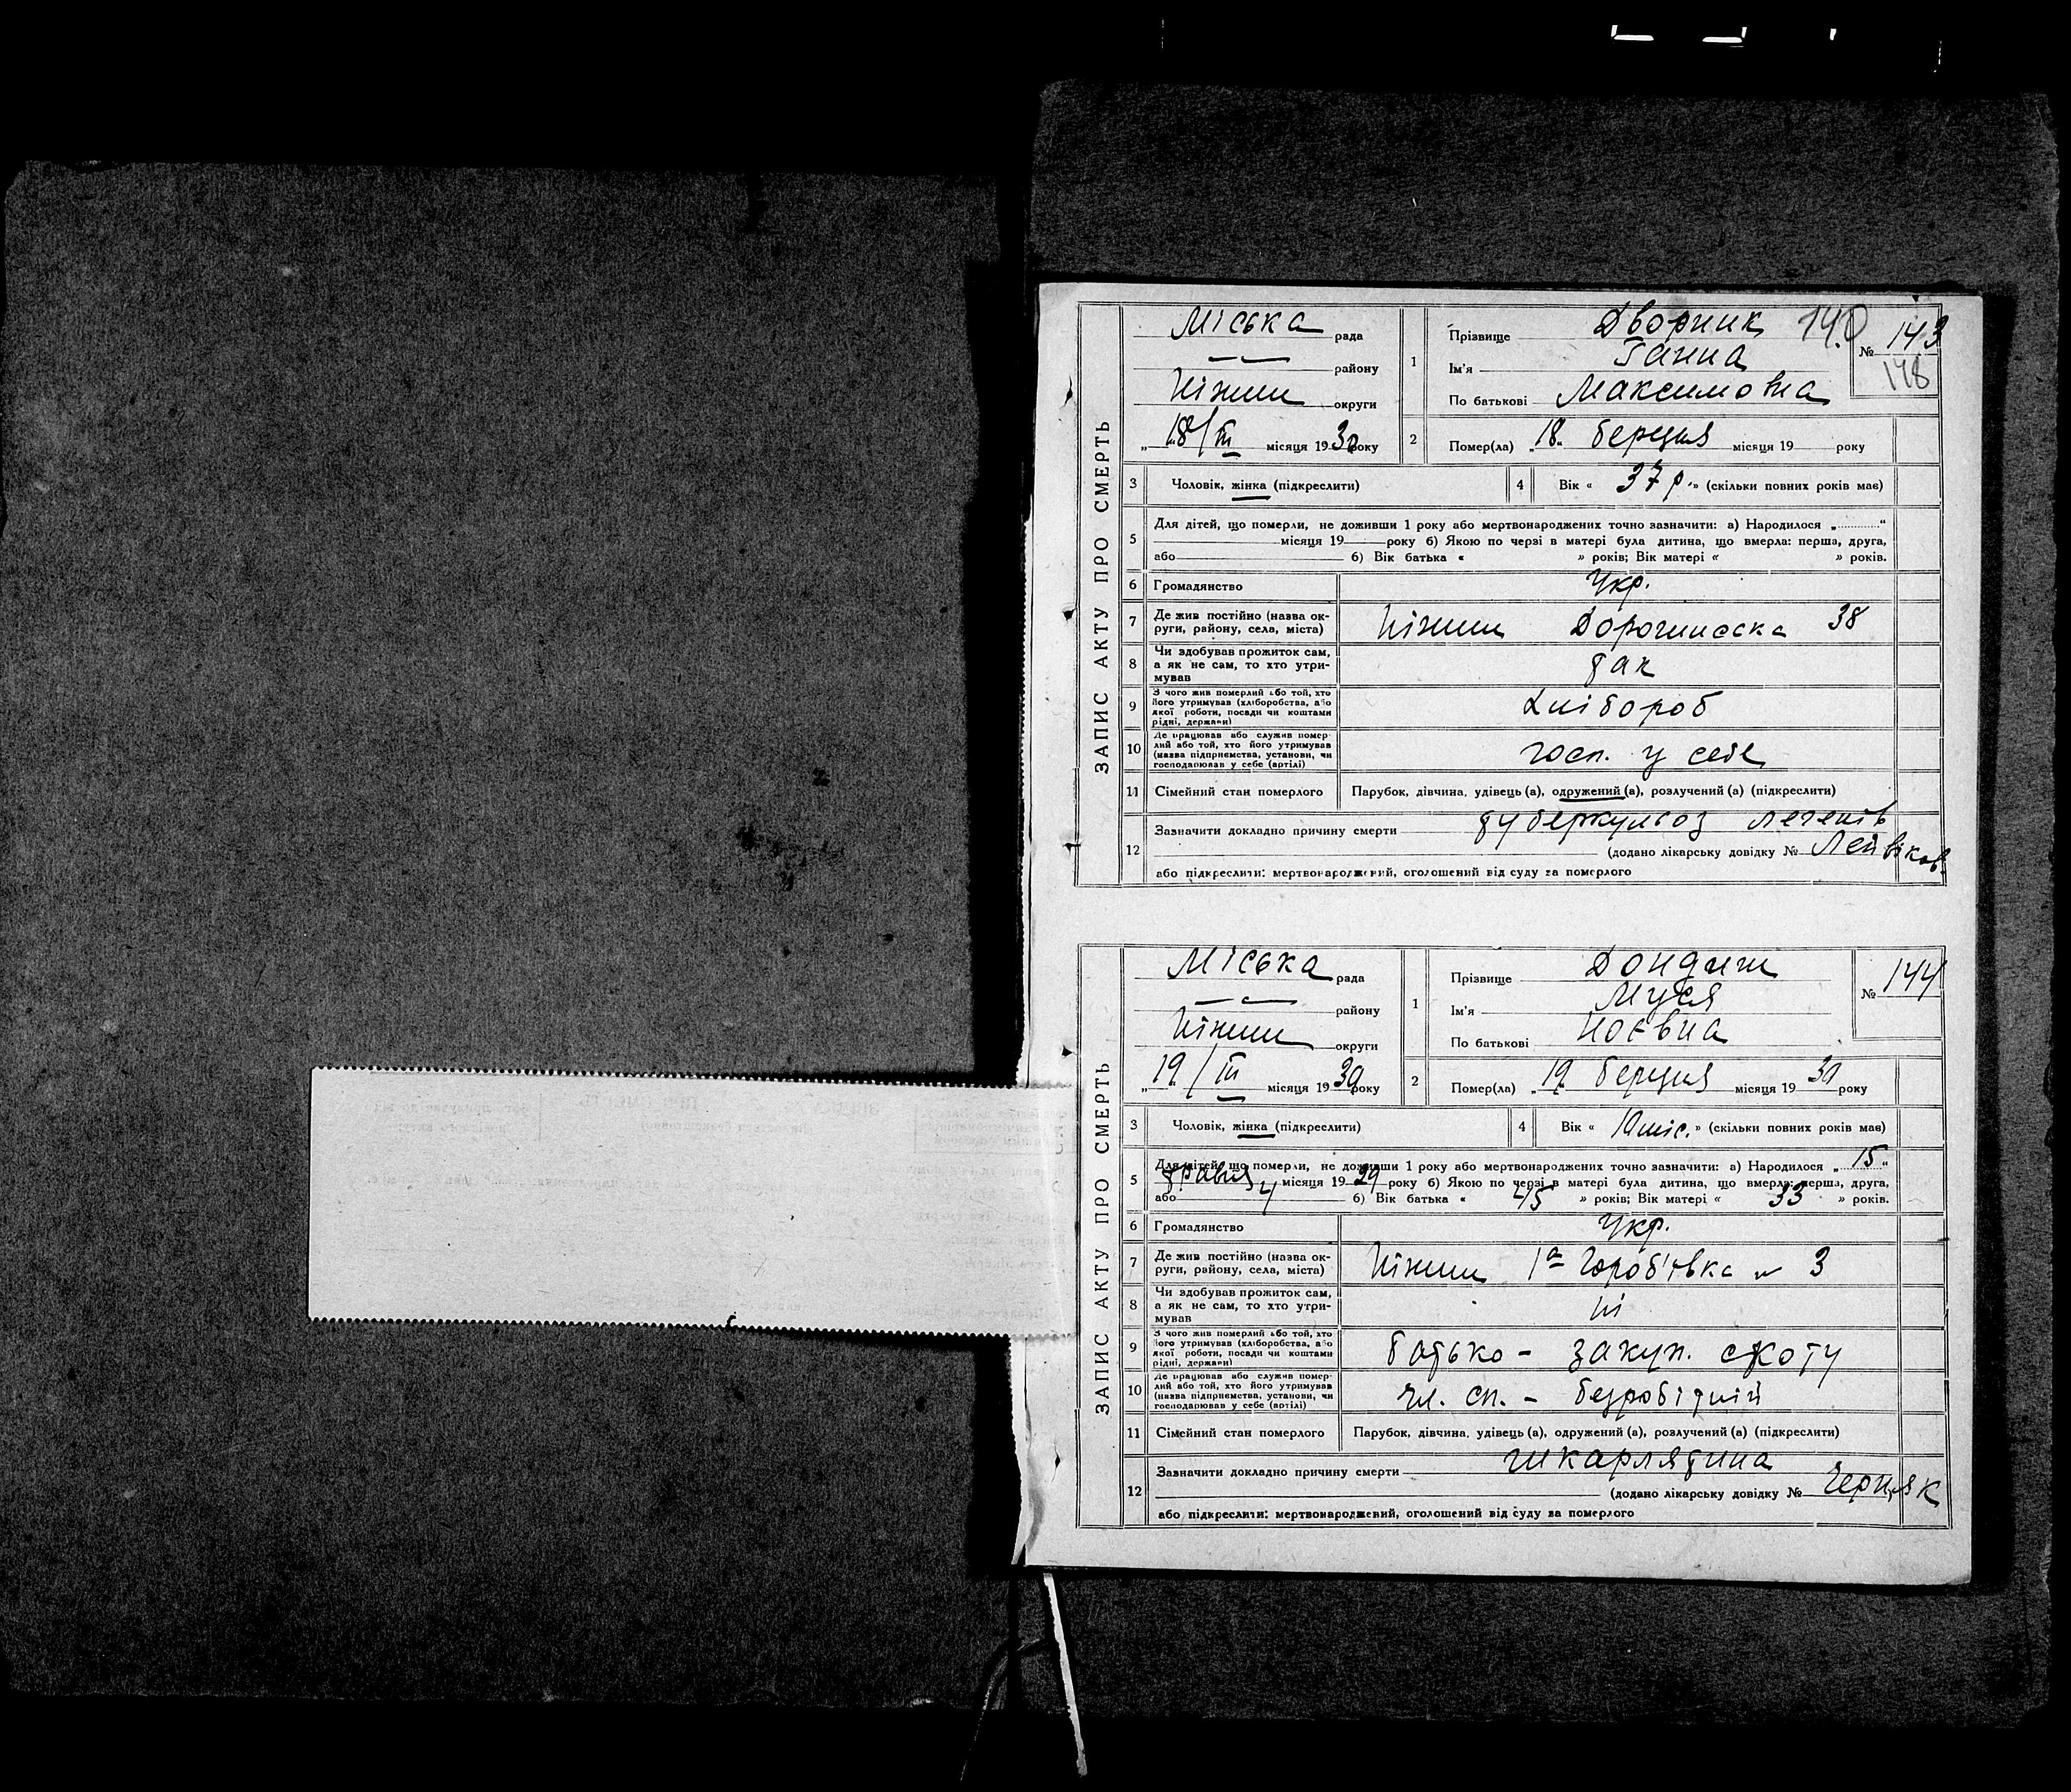 ЗАПИС АКТУ ПРО СМЕРТЬ
Міська рада
району
Ніжин округи
„18/III місяця 1930 року
1 Прізвище Дворник 140
Ім'я Ганна
По батькові Максимовна
№ 143
148
2 Помер(ла) „18„ березня місяця 19 року
3 Чоловік, жінка (підкреслити)
4 Вік « 37 р. » (скільки повних років має)
5 Для дітей, що померли, не доживши 1 року або мертвонароджених точно зазначити: а) Народилося „..........“
місяця 19 року б) Якою по черзі в матері була дитина, що вмерла: перша, друга,
або б) Вік батька « » років; Вік матері « » років.
6 Громадянство Укр.
7 Де жив постійно (назва ок-
руги, району, села, міста) Ніжин 38
8 Чи здобував прожиток сам,
а як не сам, то хто утри-
мував так
9 З чого жив померлий або той, хто
його утримував (хліборобства, або
якої роботи, посади чи коштами
рідні, держави) хлібороб
10 Де працював або служив помер-
лий або той, хто його утримував
(назва підприємства, установи, чи
господарював у себе (артілі) госп. у себе
11 Сімейний стан померлого Парубок, дівчина, удівець (а), одружений (а), розлучений (а) (підкреслити)
12 Зазначити докладно причину смерти туберкульоз легенів
(додано лікарську довідку №
або підкреслити: мертвонароджений, оголошений від суду за померлого
ЗАПИС АКТУ ПРО СМЕРТЬ
Міська рада
району
Ніжин округи
„19/III місяця 1930 року
1 Прізвище Дондиш
Ім'я Муся
По батькові Ноєвна
№ 144
2 Помер(ла) „19 березня місяця 1930 року
3 Чоловік, жінка (підкреслити)
4 Вік « 10 міс. » (скільки повних років має)
5 Для дітей, що померли, не доживши 1 року або мертвонароджених точно зазначити: а) Народилося „15“
травня місяця 1929 року б) Якою по черзі в матері була дитина, що вмерла: перша, друга,
або 4 б) Вік батька « 45 » років; Вік матері « 33 » років.
6 Громадянство Укр.
7 Де жив постійно (назва ок-
руги, району, села, міста) Ніжин 1а 3
8 Чи здобував прожиток сам,
а як не сам, то хто утри-
мував ні
9 З чого жив померлий або той, хто
його утримував (хліборобства, або
якої роботи, посади чи коштами
рідні, держави) батько - закуп. скоту
10 Де працював або служив помер-
лий або той, хто його утримував
(назва підприємства, установи, чи
господарював у себе (артілі) чл. сп. - безробітній
11 Сімейний стан померлого Парубок, дівчина, удівець (а), одружений (а), розлучений (а) (підкреслити)
12 Зазначити докладно причину смерти шкарлятина
(додано лікарську довідку № Черняк
або підкреслити: мертвонароджений, оголошений від суду за померлого